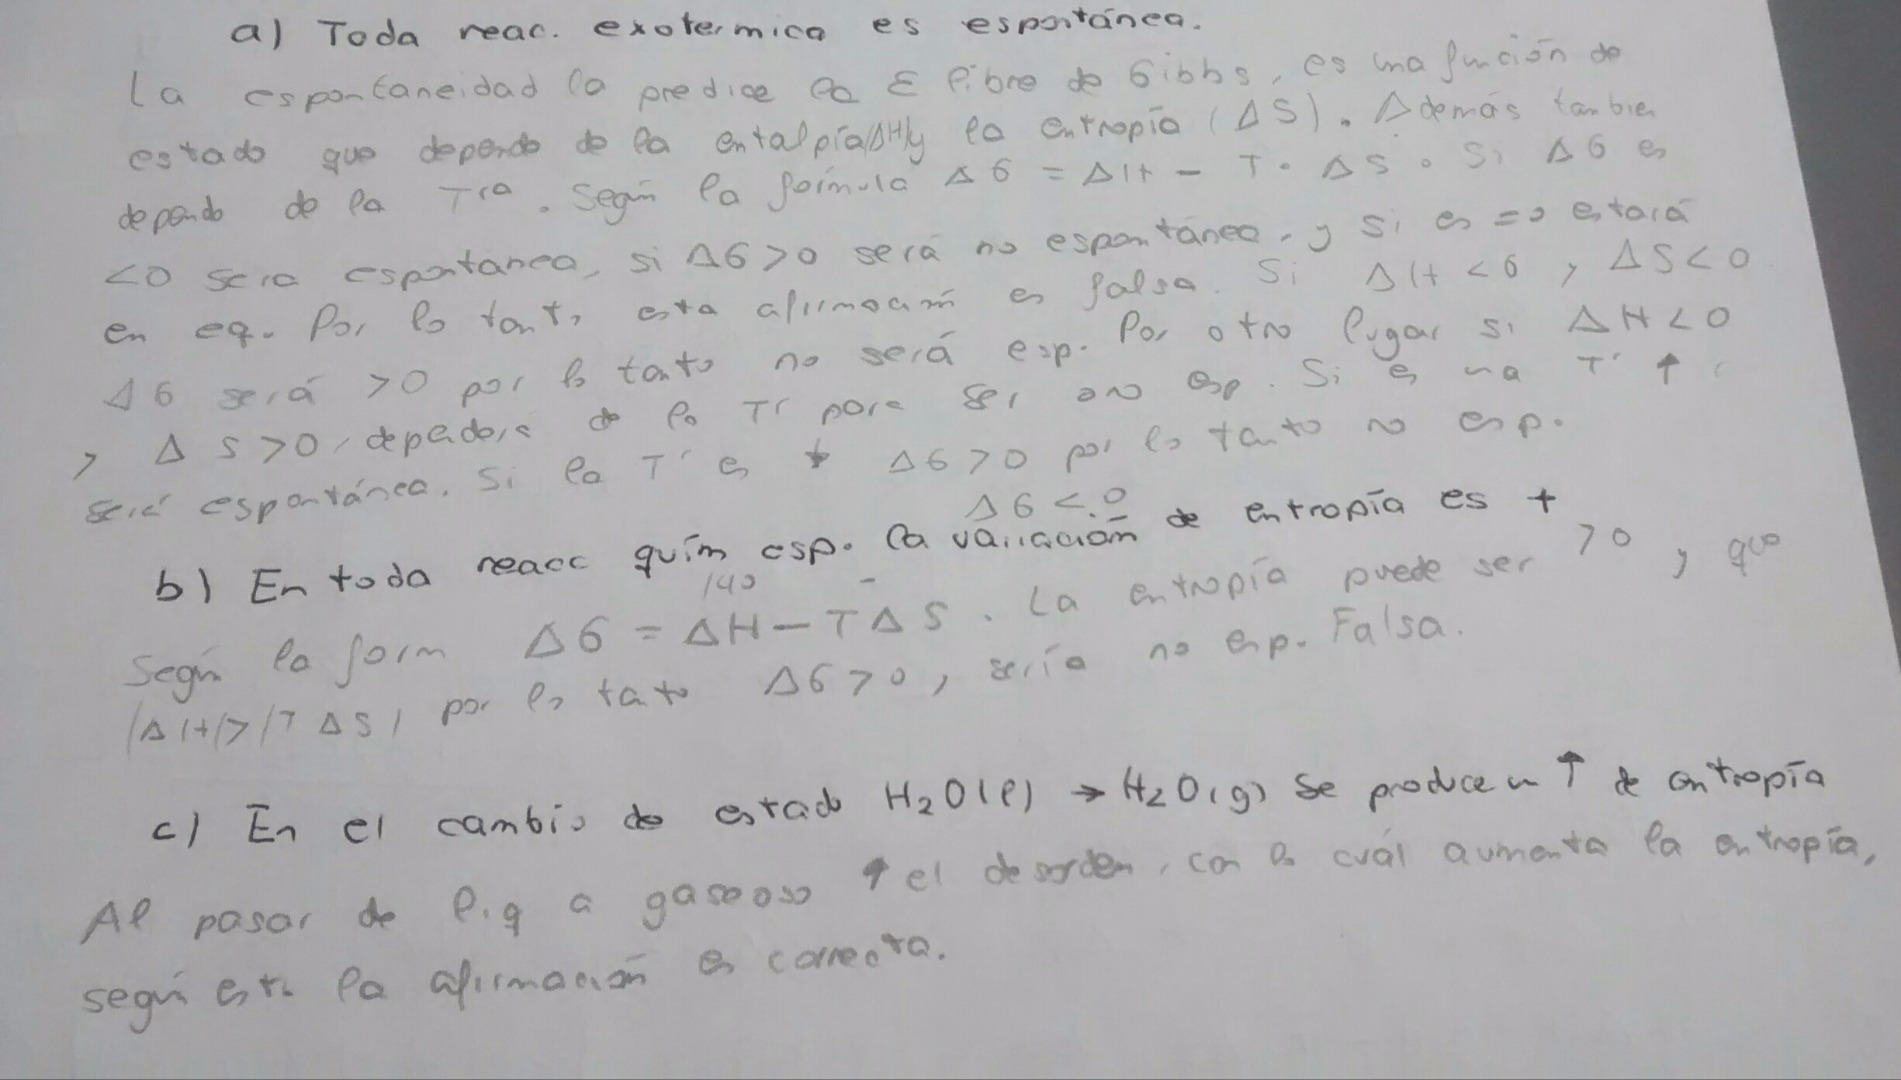 a) Toda reac. exotermica es espontánea.
La espontaneidad la predice la E libre de Gibbs, es una función de
estado que depende de la entalpía(ΔH)y la entropía (ΔS). Además tambien
depende de la Tra. Según la fórmula ΔG = ΔH - T· ΔS. Si ΔG es
<0 sera espontánea, si ΔG>0 será no espontánea, y si es =0 estará
en eq. Por lo tanto esta afirmación es falsa. Si ΔH <0, ΔS<0
ΔG será >0 por lo tanto no será esp. Por otro lugar si ΔH<0
, ΔS>0, dependerá de la Tr para ser o no esp. Si es una Tr ↑
será espontánea. Si la Tr es ↓ ΔG>0 por lo tanto no esp.
ΔG<0
b) En toda reacc quím esp. la variación de entropía es +
Según la form ΔG = ΔH-TΔS. La entropía puede ser >0, que
|ΔH|>|TΔS| por lo tato ΔG>0, sería no esp. Falsa.
c) En el cambio de estado H2O(l) → H2O(g) se produce un ↑ de entropía
Al pasar de liq a gaseoso ↑ el desorden, con lo cuál aumenta la entropía,
según esto la afirmación es correcta.